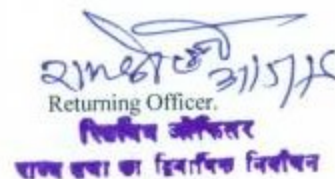 31/5/
Returning Officer.
रिटर्निंग ऑफिसर
राज्य सभा का द्विवार्षिक निर्वाचन